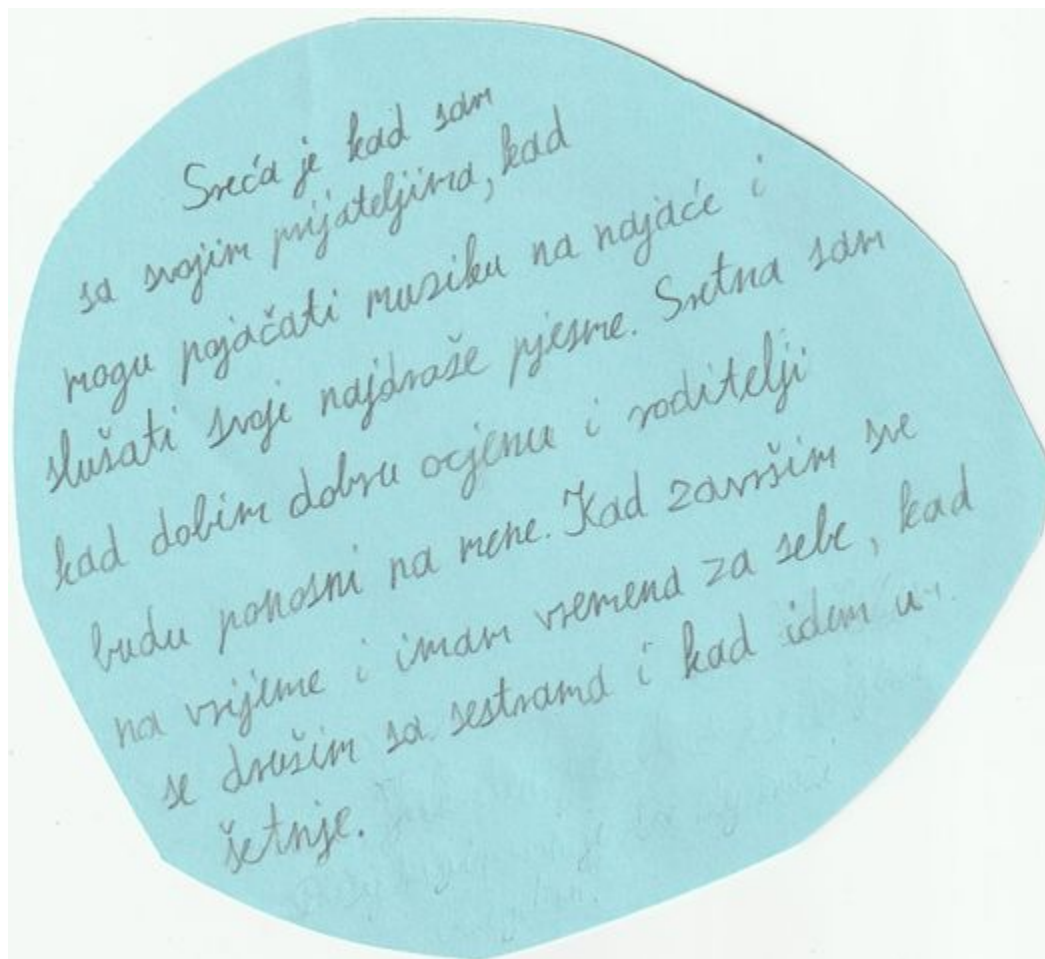 Sreća je kad sam
sa svojim prijateljima, kad
mogu pojačati muziku na najače i
slušati svoje najdraže pjesme. Sretna sam
kad dobim dobru ocjenu i roditelji
budu ponosni na mene. Kad završim sve
na vrijeme i imam vremena za sebe, kad
se družim sa sestrama i kad idem u
šetnje.